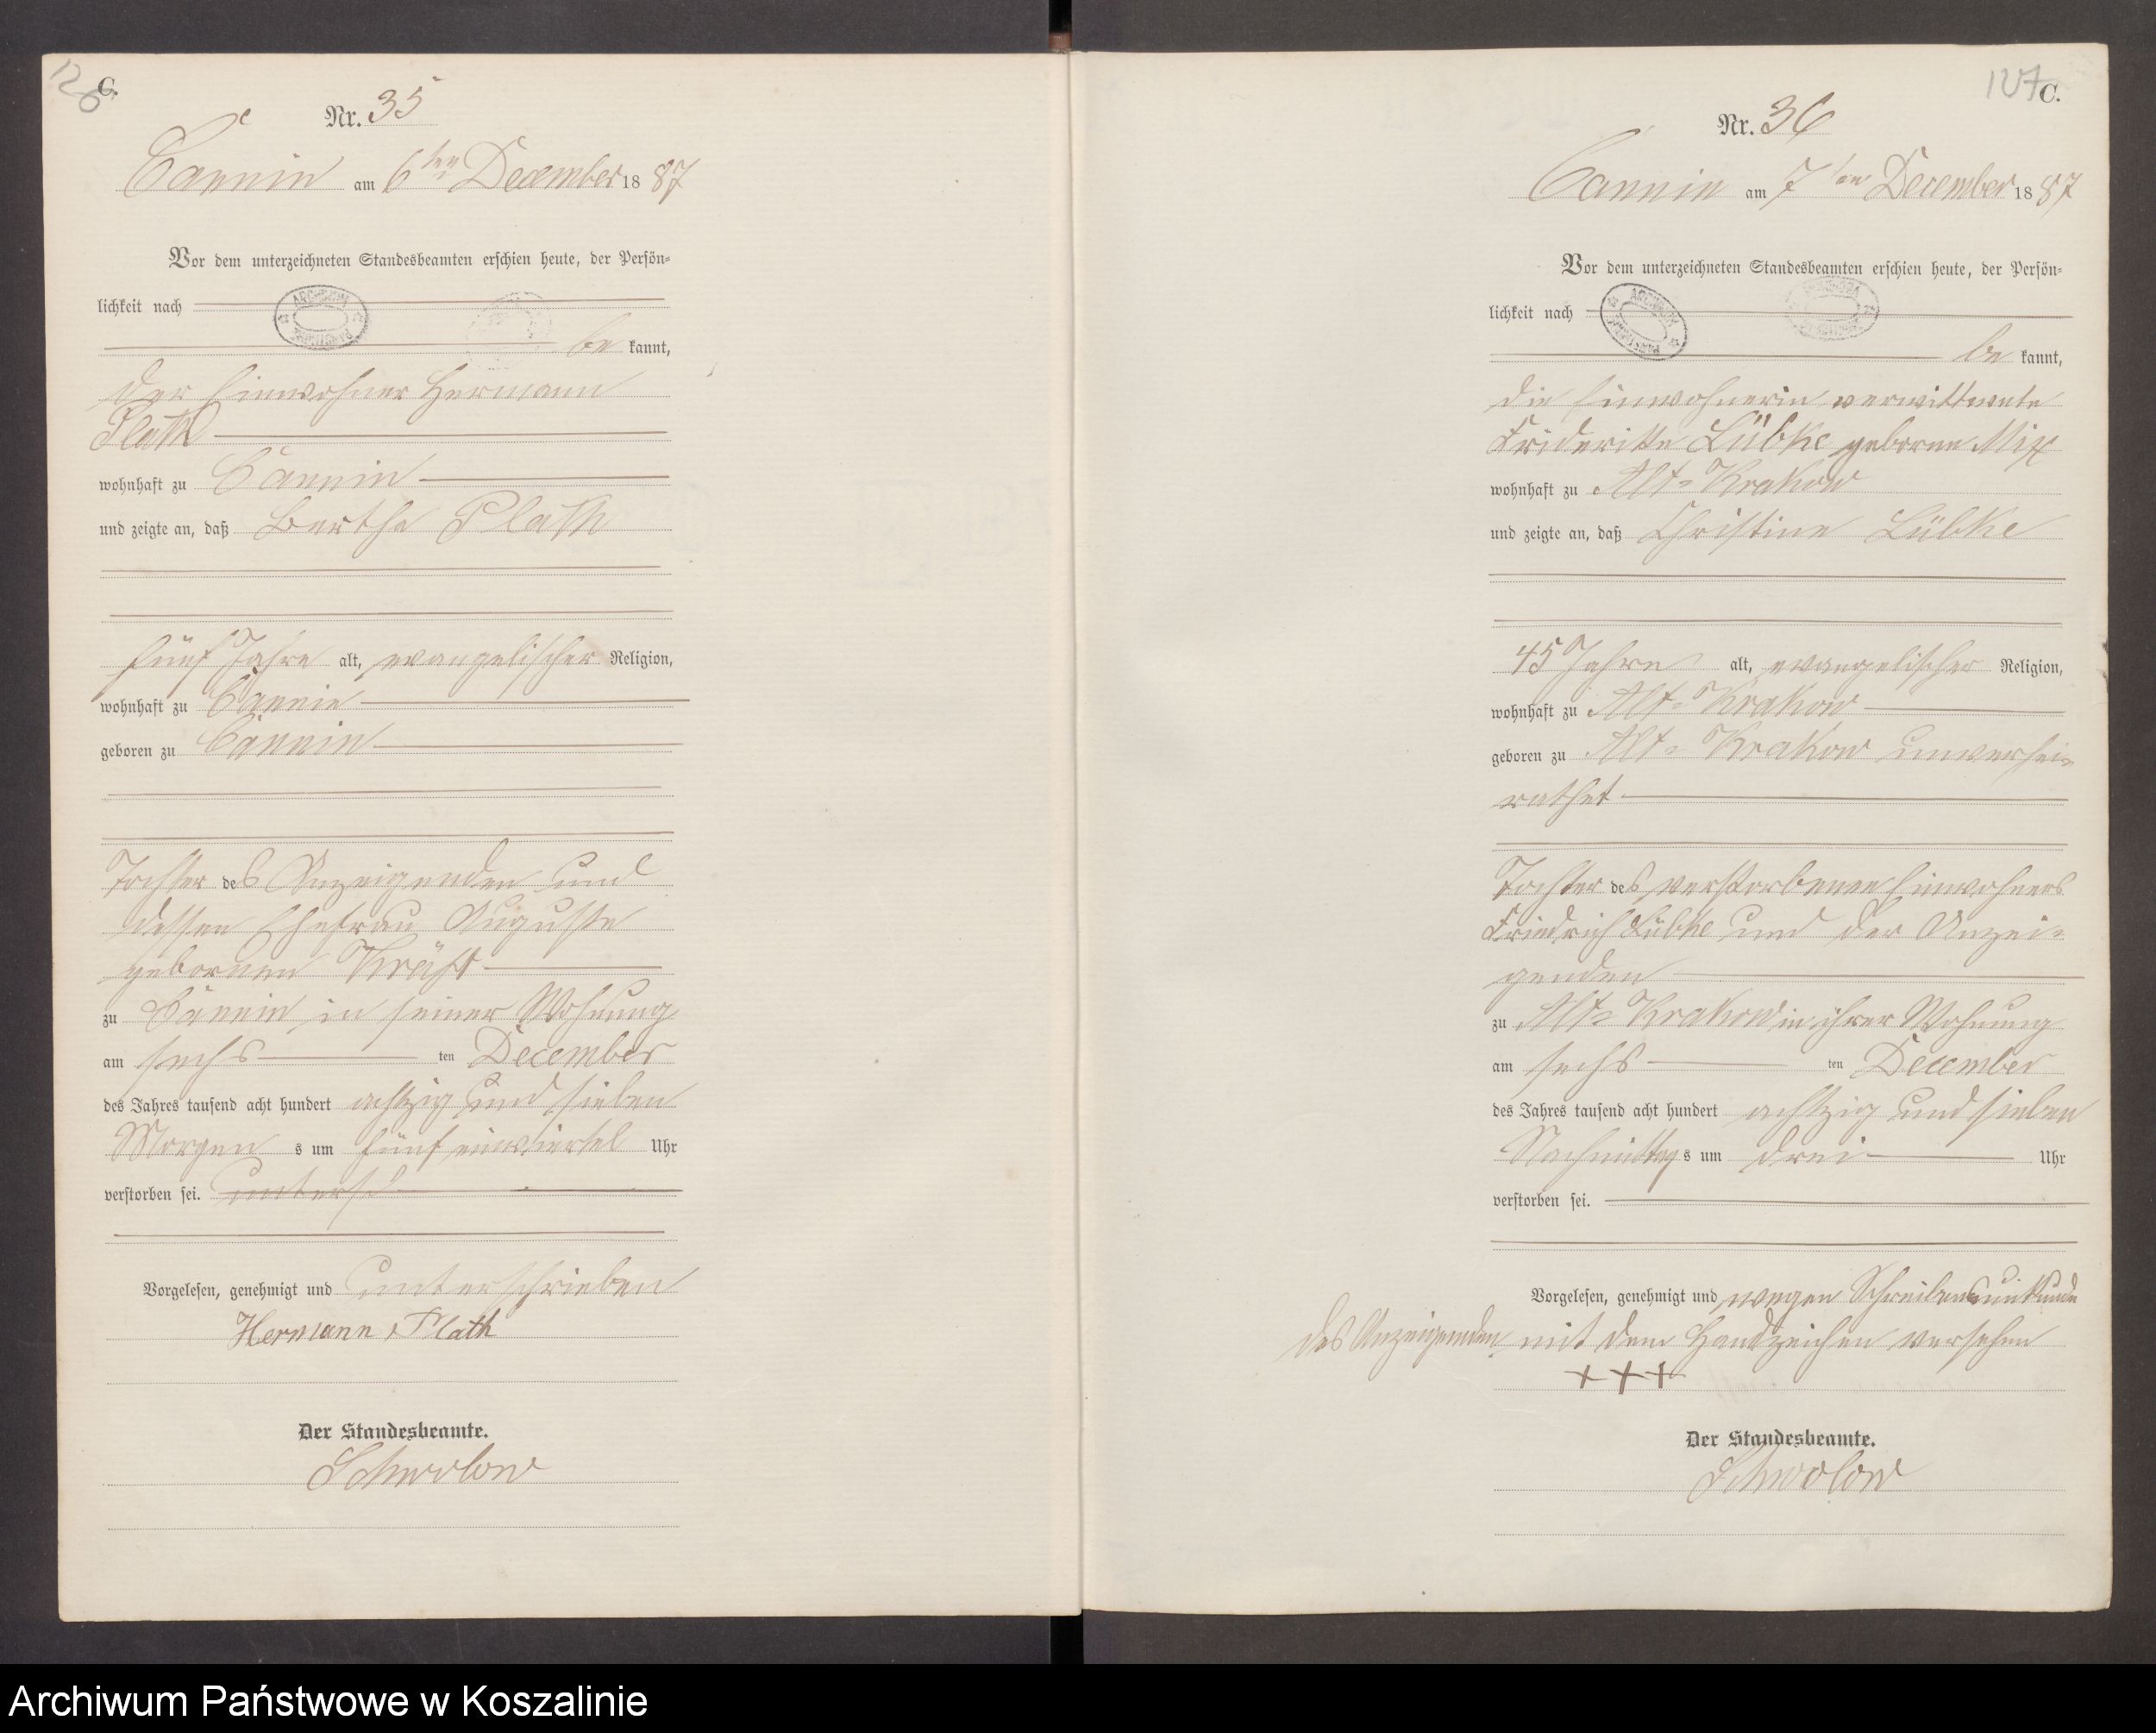 126
C.
Nr. 35
Cannin am 6ten December 1887
Vor dem unterzeichneten Standesbeamten erschien heute, der Persön-
lichkeit nach
bekannt,
der Einwohner Hermann
Plath
wohnhaft zu Cannin
und zeigte an, daß Bertha Plath
fünf Jahre alt, evangelischer Religion,
wohnhaft zu Cannin
geboren zu Cannin
Tochter des Anzeigenden und
dessen Ehefrau Auguste
gebornen Kräft
zu Cannin in seiner Wohnung
am sechsten December
des Jahres tausend acht hundert achtzig und sieben
Morgens um fünf einviertel Uhr
verstorben sei. untersch
Vorgelesen, genehmigt und unterschrieben
Hermann Plath
Der Standesbeamte.
Schwolow
127
C.
Nr. 36
Cannin am 7ten December 1887
Vor dem unterzeichneten Standesbeamten erschien heute, der Persön-
lichkeit nach
bekannt,
die Einwohnerin verwittwete
Friderikke Lübke geborne Mix
wohnhaft zu Alt-Krakow
und zeigte an, daß Christine Lübke
45 Jahre alt, evangelischer Religion,
wohnhaft zu Alt-Krakow
geboren zu Alt-Krakow unverhei-
rathet
Tochter des verstorbenen Einwohners
Friedrich Lübke und der Anzei-
genden
zu Alt-Krakow in ihrer Wohnung
am sechsten December
des Jahres tausend acht hundert achtzig und sieben
Nachmittags um drei Uhr
verstorben sei.
Vorgelesen, genehmigt und wegen Schreibensunkunde
des Anzeigenden mit dem Handzeichen versehen
+++
Der Standesbeamte.
Schwolow
Archiwum Państwowe w Koszalinie